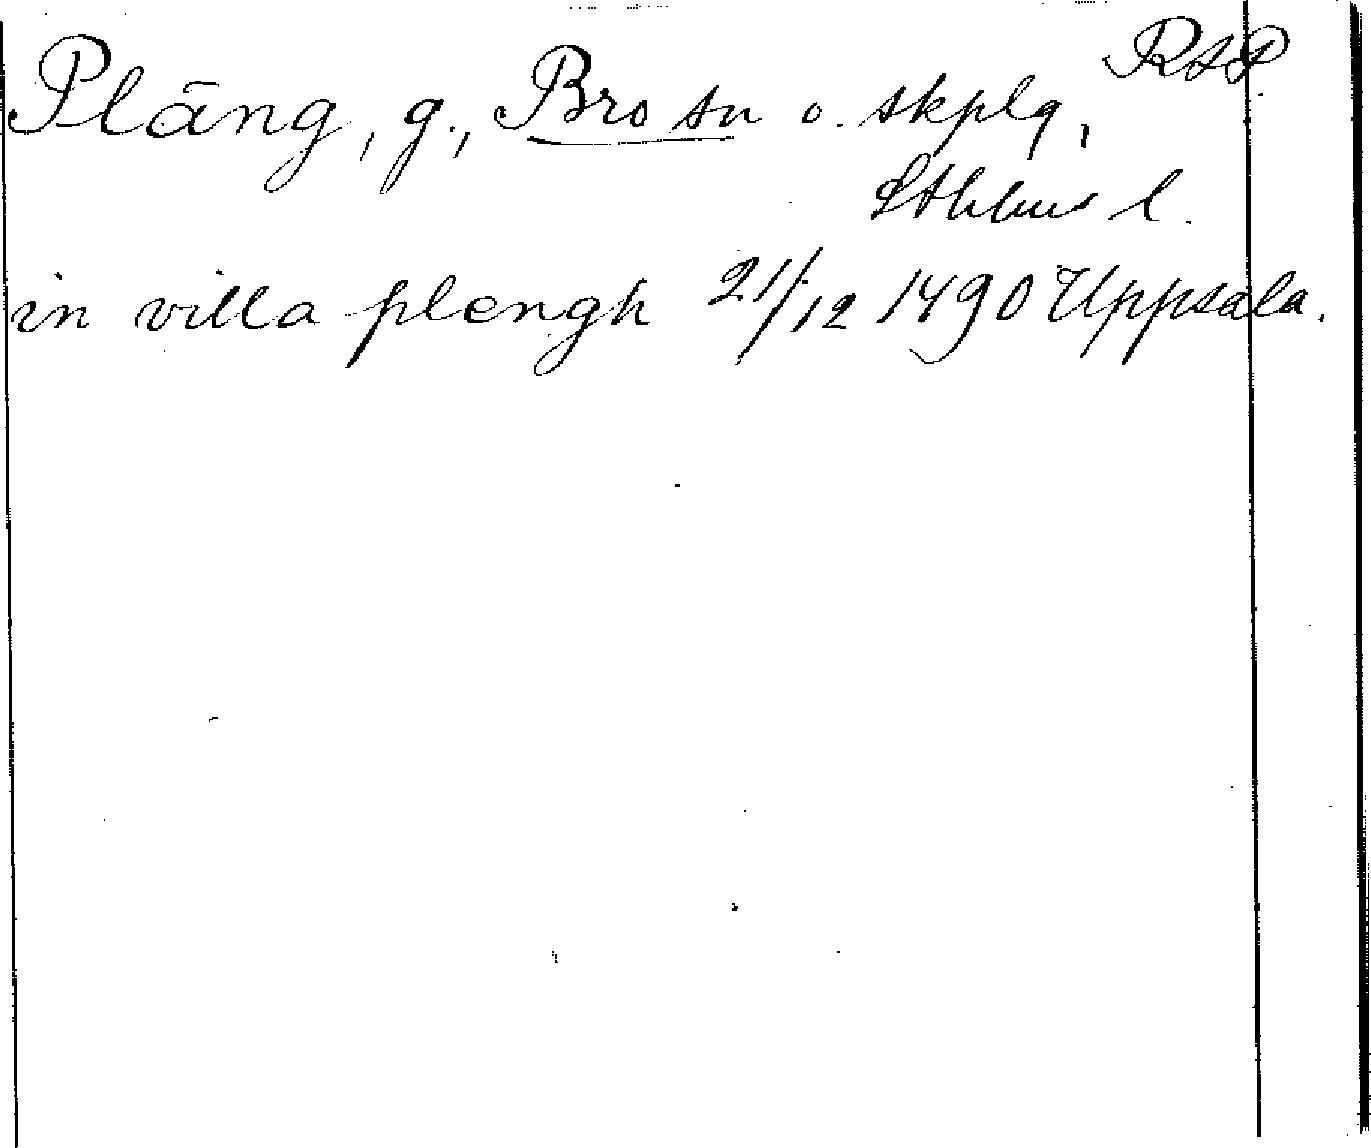 Pläng, g., Bro sn o. skplg, RAP.
Sthlms l.
in villa plengh 21/12 1490 Uppsala.